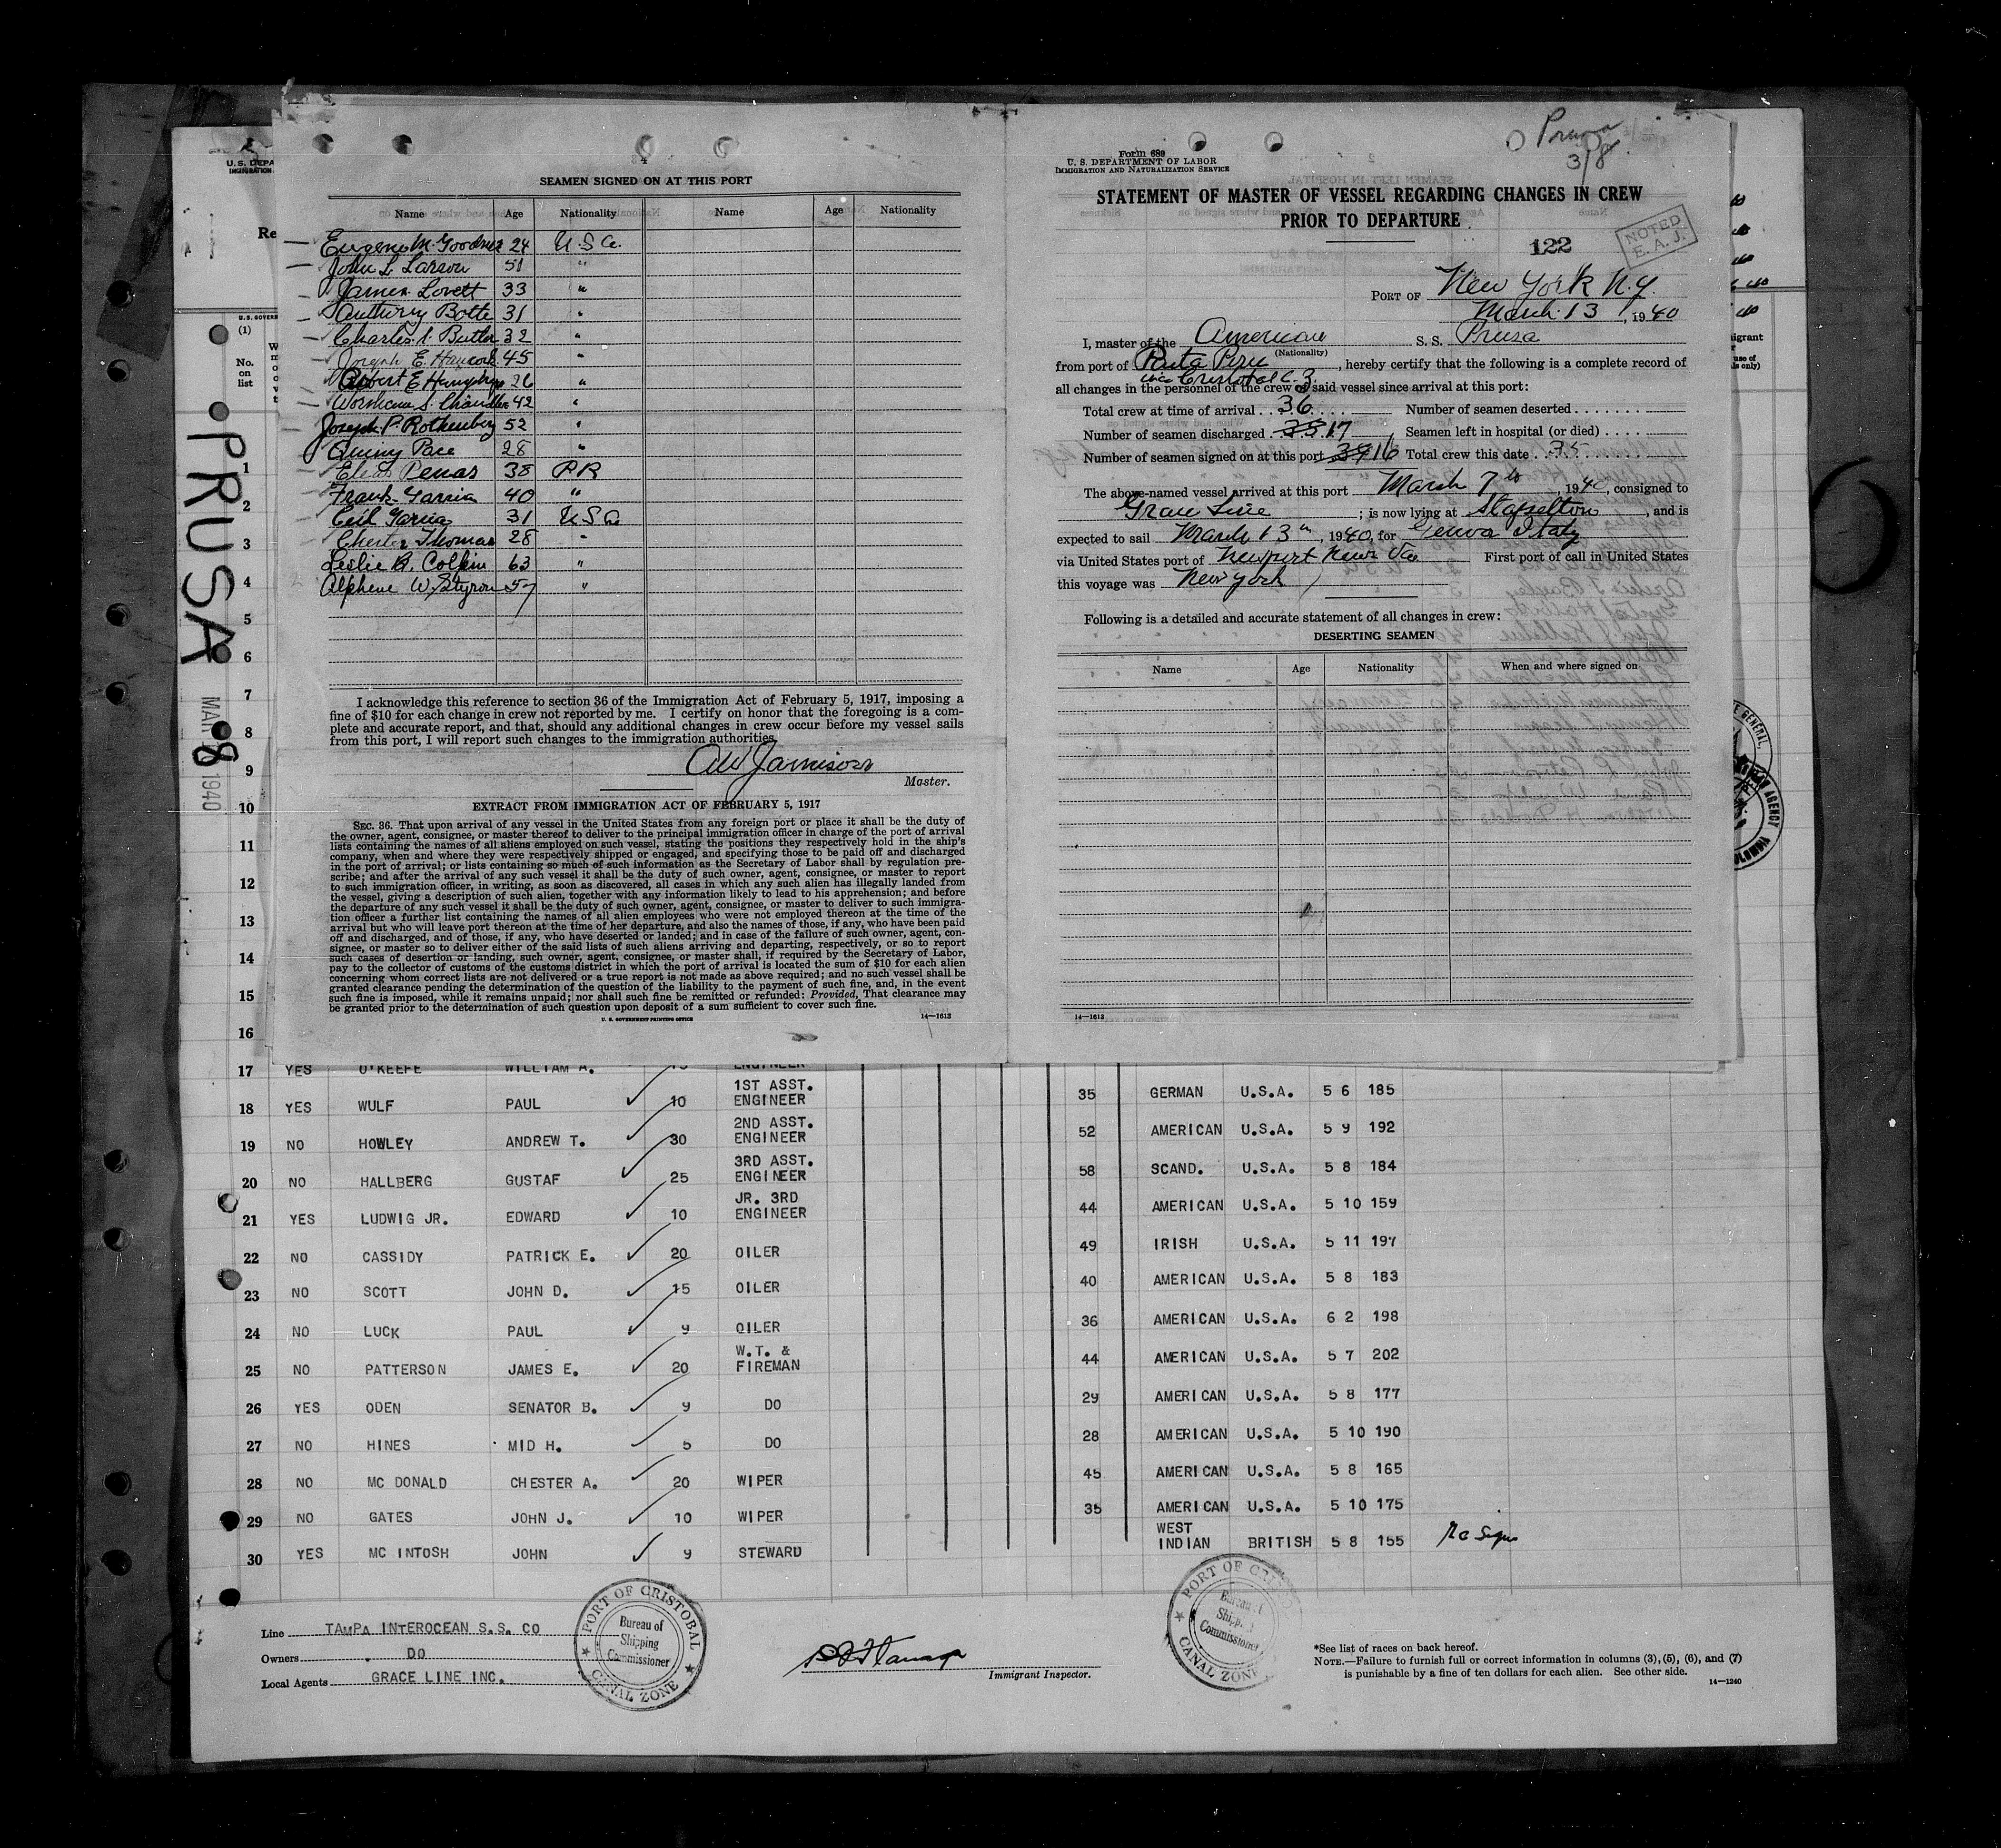 U. S. DEPA
IMMIGRATION
Re
U.S. GOVER
(1)
No.
on
list
PRUSA
MAR 8 1940
4
SEAMEN SIGNED ON AT THIS PORT
Name Age Nationality Name Age Nationality
Eugene M. Goodner 24 U.S.A.
John L. Larson 51 "
James Lovett 33 "
Anthony Botte 31 "
Charles I. Butler 32 "
Joseph E. Hancock 45 "
Robert E. Humphrys 26 "
S. Chandler 42 "
Joseph P. Rothenberg 52 "
Quiny Pace 28 "
Elias Penas 38 P.R.
Frank Garcia 40 "
Garcia 31 U.S.A.
Chester Thomas 28 "
Leslie B. Colpin 63 "
Alphene W. Styron 57 "
I acknowledge this reference to section 36 of the Immigration Act of February 5, 1917, imposing a
fine of $10 for each change in crew not reported by me. I certify on honor that the foregoing is a com-
plete and accurate report, and that, should any additional changes in crew occur before my vessel sails
from this port, I will report such changes to the immigration authorities.
AW Jamison
Master.
EXTRACT FROM IMMIGRATION ACT OF FEBRUARY 5, 1917
SEC. 36. That upon arrival of any vessel in the United States from any foreign port or place it shall be the duty of
the owner, agent, consignee, or master thereof to deliver to the principal immigration officer in charge of the port of arrival
lists containing the names of all aliens employed on such vessel, stating the positions they respectively hold in the ship's
company, when and where they were respectively shipped or engaged, and specifying those to be paid off and discharged
in the port of arrival; or lists containing so much of such information as the Secretary of Labor shall by regulation pre-
scribe; and after the arrival of any such vessel it shall be the duty of such owner, agent, consignee, or master to report
to such immigration officer, in writing, as soon as discovered, all cases in which any such alien has illegally landed from
the vessel, giving a description of such alien, together with any information likely to lead to his apprehension; and before
the departure of any such vessel it shall be the duty of such owner, agent, consignee, or master to deliver to such immigra-
tion officer a further list containing the names of all alien employees who were not employed thereon at the time of the
arrival but who will leave port thereon at the time of her departure, and also the names of those, if any, who have been paid
off and discharged, and of those, if any, who have deserted or landed; and in case of the failure of such owner, agent, con-
signee, or master so to deliver either of the said lists of such aliens arriving and departing, respectively, or so to report
such cases of desertion or landing, such owner, agent, consignee, or master shall, if required by the Secretary of Labor,
pay to the collector of customs of the customs district in which the port of arrival is located the sum of $10 for each alien
concerning whom correct lists are not delivered or a true report is not made as above required; and no such vessel shall be
granted clearance pending the determination of the question of the liability to the payment of such fine, and, in the event
such fine is imposed, while it remains unpaid; nor shall such fine be remitted or refunded: Provided, That clearance may
be granted prior to the determination of such question upon deposit of a sum sufficient to cover such fine.
U. S. GOVERNMENT PRINTING OFFICE 14—1613
Prusa
3/8
Form 689
U. S. DEPARTMENT OF LABOR
IMMIGRATION AND NATURALIZATION SERVICE
STATEMENT OF MASTER OF VESSEL REGARDING CHANGES IN CREW
PRIOR TO DEPARTURE
122
NOTED
E. A. J.
PORT OF New York N.Y.
March 13, 1940
I, master of the American S. S. Prusa
(Nationality)
from port of Paita Peru, hereby certify that the following is a complete record of
via Cristobal C.Z.
all changes in the personnel of the crew of said vessel since arrival at this port:
Total crew at time of arrival 36 Number of seamen deserted
Number of seamen discharged 17 Seamen left in hospital (or died)
Number of seamen signed on at this port 16 Total crew this date 35
The above-named vessel arrived at this port March 7th, 1940, consigned to
Grace Line; is now lying at Stapleton, and is
expected to sail March 13th, 1940, for Genoa Italy
via United States port of Newport News Va First port of call in United States
this voyage was New York
Following is a detailed and accurate statement of all changes in crew:
DESERTING SEAMEN
Name Age Nationality When and where signed on
14—1613
1
2
3
4
5
6
7
8
9
10
11
12
13
14
15
16
17 YES O'KEEFE WILLIAM A. 15 ENGINEER
18 YES WULF PAUL 10 1ST ASST. ENGINEER 35 GERMAN U.S.A. 5 6 185
19 NO HOWLEY ANDREW T. 30 2ND ASST. ENGINEER 52 AMERICAN U.S.A. 5 9 192
20 NO HALLBERG GUSTAF 25 3RD ASST. ENGINEER 58 SCAND. U.S.A. 5 8 184
21 YES LUDWIG JR. EDWARD 10 JR. 3RD ENGINEER 44 AMERICAN U.S.A. 5 10 159
22 NO CASSIDY PATRICK E. 20 OILER 49 IRISH U.S.A. 5 11 197
23 NO SCOTT JOHN D. 15 OILER 40 AMERICAN U.S.A. 5 8 183
24 NO LUCK PAUL 9 OILER 36 AMERICAN U.S.A. 6 2 198
25 NO PATTERSON JAMES E. 20 W.T. & FIREMAN 44 AMERICAN U.S.A. 5 7 202
26 YES ODEN SENATOR B. 9 DO 29 AMERICAN U.S.A. 5 8 177
27 NO HINES MID H. 5 DO 28 AMERICAN U.S.A. 5 10 190
28 NO MC DONALD CHESTER A. 20 WIPER 45 AMERICAN U.S.A. 5 8 165
29 NO GATES JOHN J. 10 WIPER 35 AMERICAN U.S.A. 5 10 175
30 YES MC INTOSH JOHN 9 STEWARD WEST INDIAN BRITISH 5 8 155
Line TAMPA INTEROCEAN S.S. CO
Owners DO
Local Agents GRACE LINE INC.
PORT OF CRISTOBAL
Bureau of
Shipping
Commissioner
CANAL ZONE
Immigrant Inspector.
PORT OF CRISTOBAL
Bureau of
Shipping
Commissioner
CANAL ZONE
*See list of races on back hereof.
NOTE.—Failure to furnish full or correct information in columns (3), (5), (6), and (7)
is punishable by a fine of ten dollars for each alien. See other side.
14—1240